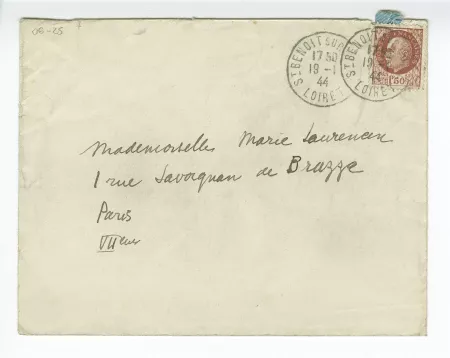 OR-25
ST BENOIT SUR
17 30
19 - 1
44
LOIRET
ST BENOIT
17
19
44
LOIRET
1f50
Mademoiselles Marie Laurencin
1 rue Savorgnan de Brazza
Paris
VIIeme